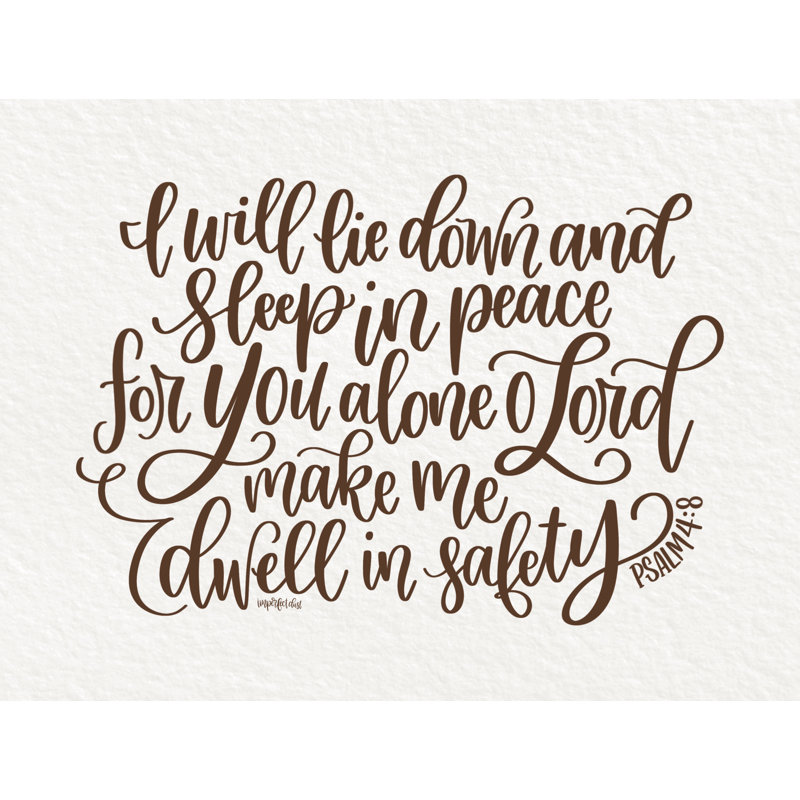 I will lie down and
sleep in peace
for you alone O Lord
make me
dwell in safety
PSALM 4:8
imperfect dust